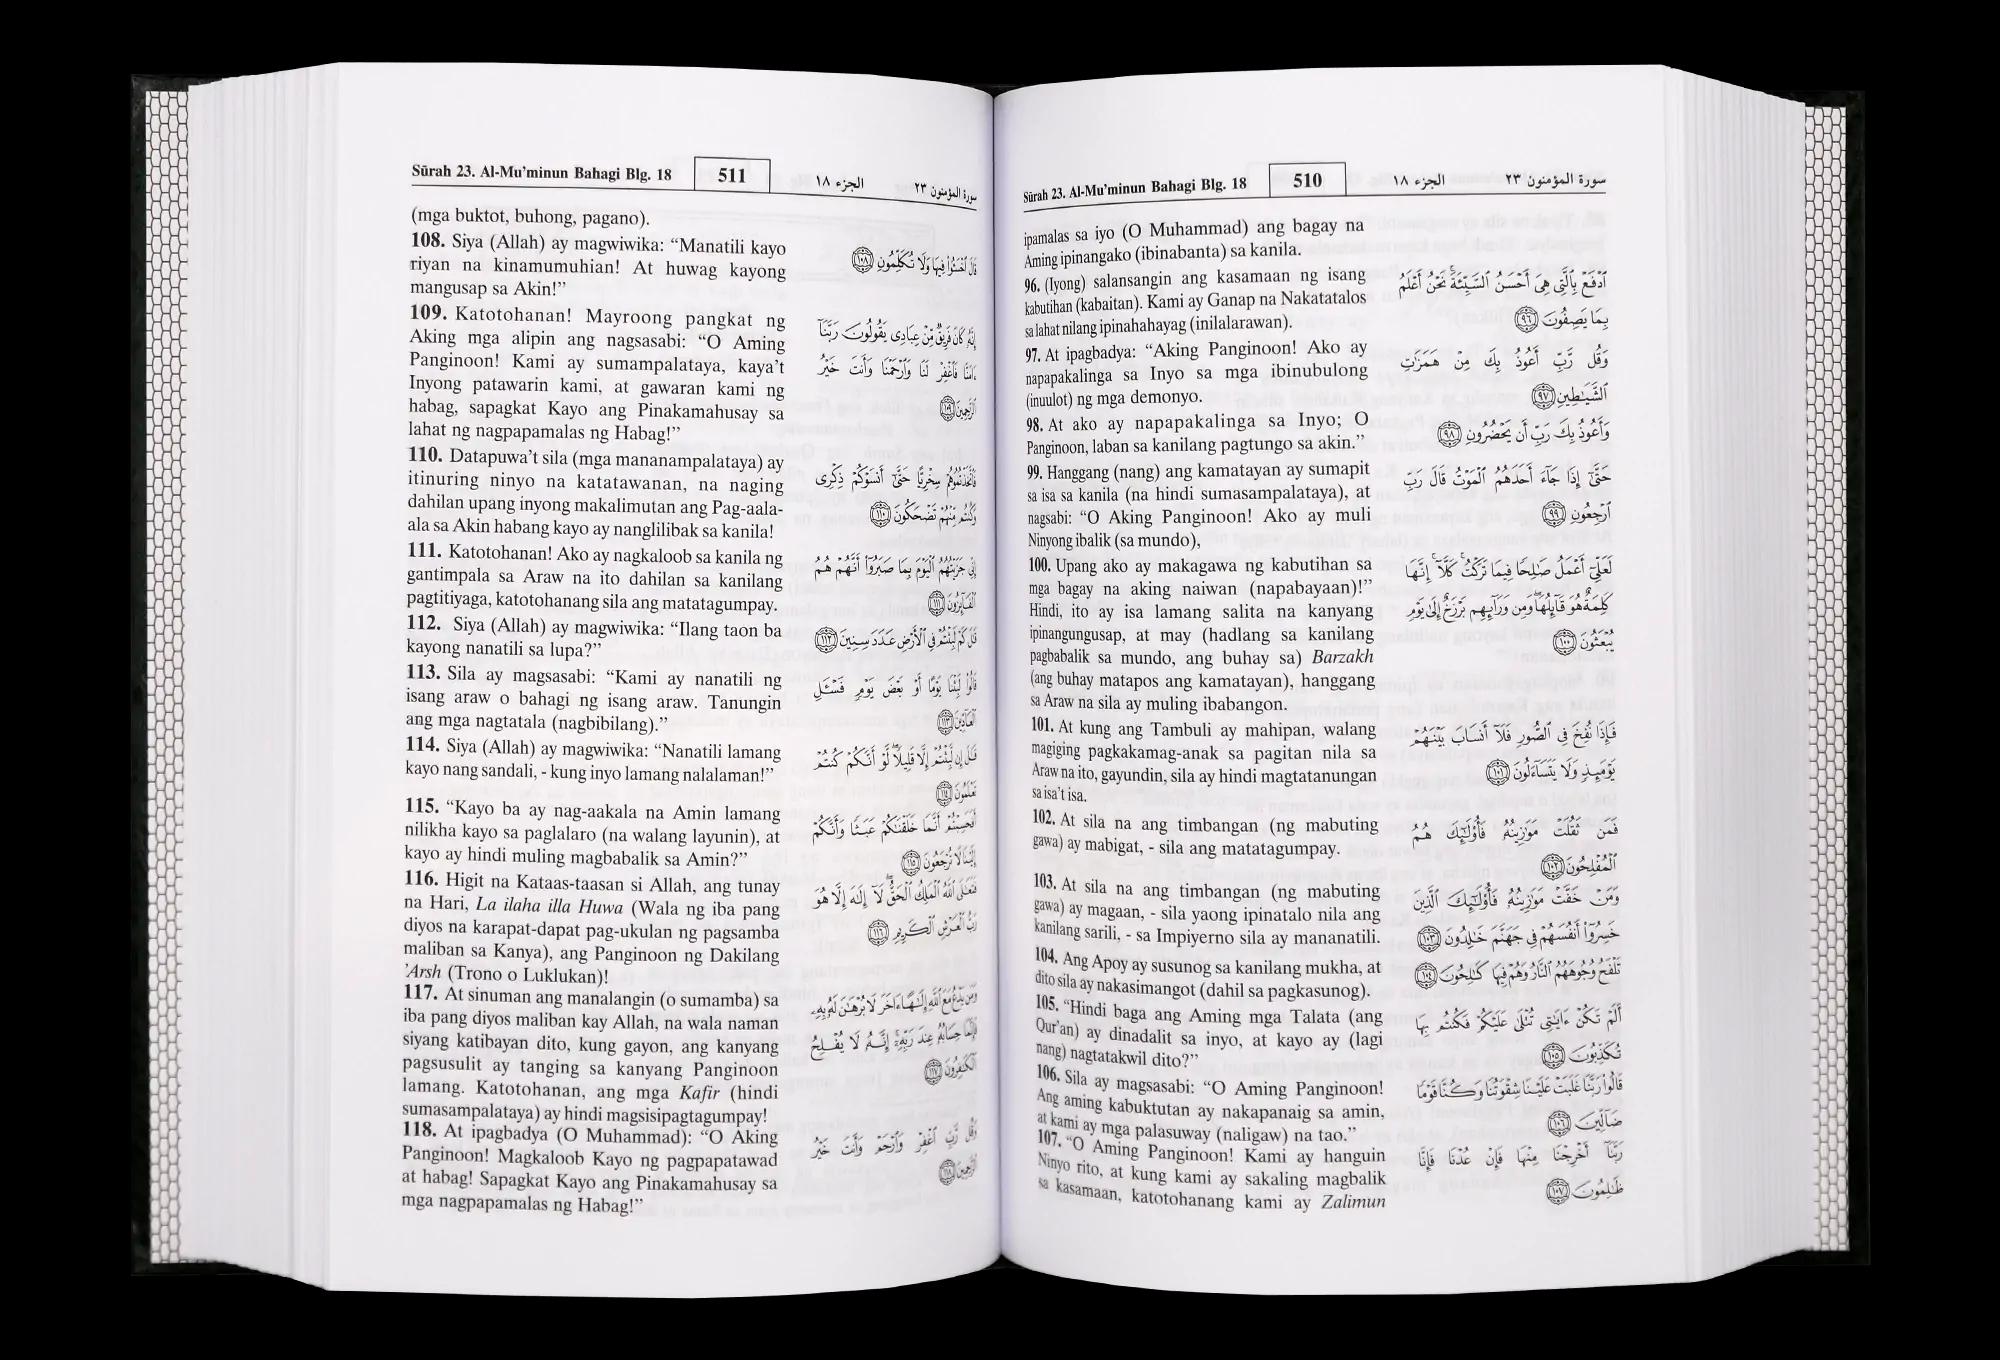 Sūrah 23. Al-Mu’minun Bahagi Blg. 18
510
الجزء ١٨
سورة المؤمنون ٢٣
ipamalas sa iyo (O Muhammad) ang bagay na
Aming ipinangako (ibinabanta) sa kanila.
96. (Iyong) salansangin ang kasamaan ng isang
kabutihan (kabaitan). Kami ay Ganap na Nakatatalos
sa lahat nilang ipinahahayag (inilalarawan).
97. At ipagbadya: “Aking Panginoon! Ako ay
napapakalinga sa Inyo sa mga ibinubulong
(inuulot) ng mga demonyo.
98. At ako ay napapakalinga sa Inyo; O
Panginoon, laban sa kanilang pagtungo sa akin.”
99. Hanggang (nang) ang kamatayan ay sumapit
sa isa sa kanila (na hindi sumasampalataya), at
nagsabi: “O Aking Panginoon! Ako ay muli
Ninyong ibalik (sa mundo),
100. Upang ako ay makagawa ng kabutihan sa
mga bagay na aking naiwan (napabayaan)!”
Hindi, ito ay isa lamang salita na kanyang
ipinangungusap, at may (hadlang sa kanilang
pagbabalik sa mundo, ang buhay sa) Barzakh
(ang buhay matapos ang kamatayan), hanggang
sa Araw na sila ay muling ibabangon.
101. At kung ang Tambuli ay mahipan, walang
magiging pagkakamag-anak sa pagitan nila sa
Araw na ito, gayundin, sila ay hindi magtatanungan
sa isa’t isa.
102. At sila na ang timbangan (ng mabuting
gawa) ay mabigat, - sila ang matatagumpay.
103. At sila na ang timbangan (ng mabuting
gawa) ay magaan, - sila yaong ipinatalo nila ang
kanilang sarili, - sa Impiyerno sila ay mananatili.
104. Ang Apoy ay susunog sa kanilang mukha, at
dito sila ay nakasimangot (dahil sa pagkasunog).
105. “Hindi baga ang Aming mga Talata (ang
Qur’an) ay dinadalit sa inyo, at kayo ay (lagi
nang) nagtatakwil dito?”
106. Sila ay magsasabi: “O Aming Panginoon!
Ang aming kabuktutan ay nakapanaig sa amin,
at kami ay mga palasuway (naligaw) na tao.”
107. “O Aming Panginoon! Kami ay hanguin
Ninyo rito, at kung kami ay sakaling magbalik
sa kasamaan, katotohanang kami ay Zalimun
ٱدْفَعْ بِٱلَّتِى هِىَ أَحْسَنُ ٱلسَّيِّئَةَ ۚ نَحْنُ أَعْلَمُ
بِمَا يَصِفُونَ ٩٦
وَقُل رَّبِّ أَعُوذُ بِكَ مِنْ هَمَزَٰتِ
ٱلشَّيَٰطِينِ ٩٧
وَأَعُوذُ بِكَ رَبِّ أَن يَحْضُرُونِ ٩٨
حَتَّىٰٓ إِذَا جَآءَ أَحَدَهُمُ ٱلْمَوْتُ قَالَ رَبِّ
ٱرْجِعُونِ ٩٩
لَعَلِّىٓ أَعْمَلُ صَٰلِحًا فِيمَا تَرَكْتُ ۚ كَلَّآ ۚ إِنَّهَا
كَلِمَةٌ هُوَ قَآئِلُهَا ۖ وَمِن وَرَآئِهِم بَرْزَخٌ إِلَىٰ يَوْمِ
يُبْعَثُونَ ١٠٠
فَإِذَا نُفِخَ فِى ٱلصُّورِ فَلَآ أَنسَابَ بَيْنَهُمْ
يَوْمَئِذٍ وَلَا يَتَسَآءَلُونَ ١٠١
فَمَن ثَقُلَتْ مَوَٰزِينُهُۥ فَأُو۟لَٰٓئِكَ هُمُ
ٱلْمُفْلِحُونَ ١٠٢
وَمَنْ خَفَّتْ مَوَٰزِينُهُۥ فَأُو۟لَٰٓئِكَ ٱلَّذِينَ
خَسِرُوٓا۟ أَنفُسَهُمْ فِى جَهَنَّمَ خَٰلِدُونَ ١٠٣
تَلْفَحُ وُجُوهَهُمُ ٱلنَّارُ وَهُمْ فِيهَا كَٰلِحُونَ ١٠٤
أَلَمْ تَكُنْ ءَايَٰتِى تُتْلَىٰ عَلَيْكُمْ فَكُنتُم بِهَا
تُكَذِّبُونَ ١٠٥
قَالُوا۟ رَبَّنَا غَلَبَتْ عَلَيْنَا شِقْوَتُنَا وَكُنَّا قَوْمًا
ضَآلِّينَ ١٠٦
رَبَّنَآ أَخْرِجْنَا مِنْهَا فَإِنْ عُدْنَا فَإِنَّا
ظَٰلِمُونَ ١٠٧
Sūrah 23. Al-Mu’minun Bahagi Blg. 18
511
الجزء ١٨
سورة المؤمنون ٢٣
(mga buktot, buhong, pagano).
108. Siya (Allah) ay magwiwika: “Manatili kayo
riyan na kinamumuhian! At huwag kayong
mangusap sa Akin!”
109. Katotohanan! Mayroong pangkat ng
Aking mga alipin ang nagsasabi: “O Aming
Panginoon! Kami ay sumampalataya, kaya’t
Inyong patawarin kami, at gawaran kami ng
habag, sapagkat Kayo ang Pinakamahusay sa
lahat ng nagpapamalas ng Habag!”
110. Datapuwa’t sila (mga mananampalataya) ay
itinuring ninyo na katatawanan, na naging
dahilan upang inyong makalimutan ang Pag-aala-
ala sa Akin habang kayo ay nanglilibak sa kanila!
111. Katotohanan! Ako ay nagkaloob sa kanila ng
gantimpala sa Araw na ito dahilan sa kanilang
pagtitiyaga, katotohanang sila ang matatagumpay.
112. Siya (Allah) ay magwiwika: “Ilang taon ba
kayong nanatili sa lupa?”
113. Sila ay magsasabi: “Kami ay nanatili ng
isang araw o bahagi ng isang araw. Tanungin
ang mga nagtatala (nagbibilang).”
114. Siya (Allah) ay magwiwika: “Nanatili lamang
kayo nang sandali, - kung inyo lamang nalalaman!”
115. “Kayo ba ay nag-aakala na Amin lamang
nilikha kayo sa paglalaro (na walang layunin), at
kayo ay hindi muling magbabalik sa Amin?”
116. Higit na Kataas-taasan si Allah, ang tunay
na Hari, La ilaha illa Huwa (Wala ng iba pang
diyos na karapat-dapat pag-ukulan ng pagsamba
maliban sa Kanya), ang Panginoon ng Dakilang
’Arsh (Trono o Luklukan)!
117. At sinuman ang manalangin (o sumamba) sa
iba pang diyos maliban kay Allah, na wala naman
siyang katibayan dito, kung gayon, ang kanyang
pagsusulit ay tanging sa kanyang Panginoon
lamang. Katotohanan, ang mga Kafir (hindi
sumasampalataya) ay hindi magsisipagtagumpay!
118. At ipagbadya (O Muhammad): “O Aking
Panginoon! Magkaloob Kayo ng pagpapatawad
at habag! Sapagkat Kayo ang Pinakamahusay sa
mga nagpapamalas ng Habag!”
قَالَ ٱخْسَـُٔوا۟ فِيهَا وَلَا تُكَلِّمُونِ ١٠٨
إِنَّهُۥ كَانَ فَرِيقٌ مِّنْ عِبَادِى يَقُولُونَ رَبَّنَآ
ءَامَنَّا فَٱغْفِرْ لَنَا وَٱرْحَمْنَا وَأَنتَ خَيْرُ
ٱلرَّٰحِمِينَ ١٠٩
فَٱتَّخَذْتُمُوهُمْ سِخْرِيًّا حَتَّىٰٓ أَنسَوْكُمْ ذِكْرِى
وَكُنتُم مِّنْهُمْ تَضْحَكُونَ ١١٠
إِنِّى جَزَيْتُهُمُ ٱلْيَوْمَ بِمَا صَبَرُوٓا۟ أَنَّهُمْ هُمُ
ٱلْفَآئِزُونَ ١١١
قَٰلَ كَمْ لَبِثْتُمْ فِى ٱلْأَرْضِ عَدَدَ سِنِينَ ١١٢
قَالُوا۟ لَبِثْنَا يَوْمًا أَوْ بَعْضَ يَوْمٍ فَسْـَٔلِ
ٱلْعَآدِّينَ ١١٣
قَٰلَ إِن لَّبِثْتُمْ إِلَّا قَلِيلًا ۖ لَّوْ أَنَّكُمْ كُنتُمْ
تَعْلَمُونَ ١١٤
أَفَحَسِبْتُمْ أَنَّمَا خَلَقْنَٰكُمْ عَبَثًا وَأَنَّكُمْ
إِلَيْنَا لَا تُرْجَعُونَ ١١٥
فَتَعَٰلَى ٱللَّهُ ٱلْمَلِكُ ٱلْحَقُّ ۖ لَآ إِلَٰهَ إِلَّا هُوَ
رَبُّ ٱلْعَرْشِ ٱلْكَرِيمِ ١١٦
وَمَن يَدْعُ مَعَ ٱللَّهِ إِلَٰهًا ءَاخَرَ لَا بُرْهَٰنَ لَهُۥ بِهِۦ
فَإِنَّمَا حِسَابُهُۥ عِندَ رَبِّهِۦٓ ۚ إِنَّهُۥ لَا يُفْلِحُ
ٱلْكَٰفِرُونَ ١١٧
وَقُل رَّبِّ ٱغْفِرْ وَٱرْحَمْ وَأَنتَ خَيْرُ
ٱلرَّٰحِمِينَ ١١٨